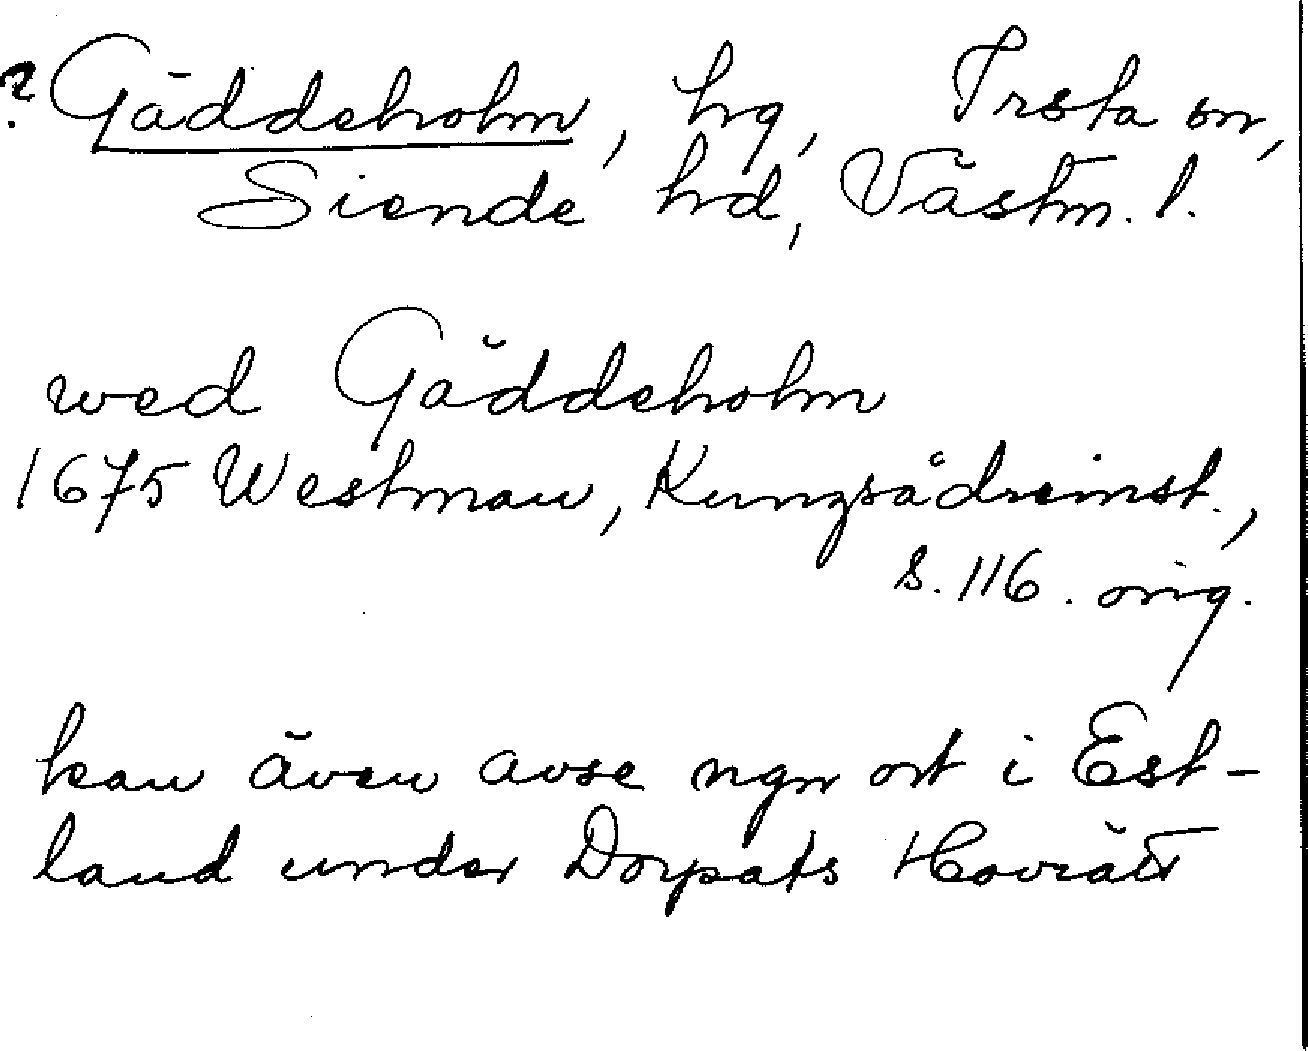 ? Gäddeholm, hg, Irsta sn,
Siende hd, Västm. l.
wed Gäddeholm
1675 Westman, Kungsådreinst.,
s. 116. orig.
kan även avse ngn ort i Est-
land under Dorpats Hovrätt